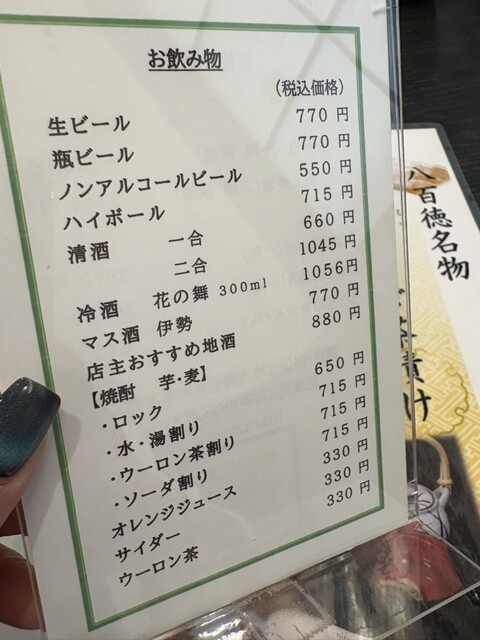 お飲み物
(税込価格)
生ビール 770 円
瓶ビール 770 円
ノンアルコールビール 550 円
ハイボール 715 円
清酒 一合 660 円
二合 1045 円
冷酒 花の舞 300ml 1056円
マス酒 伊勢 770 円
店主おすすめ地酒 880 円
【焼酎 芋・麦】
・ロック 650 円
・水・湯割り 715 円
・ウーロン茶割り 715 円
・ソーダ割り 715 円
オレンジジュース 330 円
サイダー 330 円
ウーロン茶 330 円
八百徳名物
茶漬け